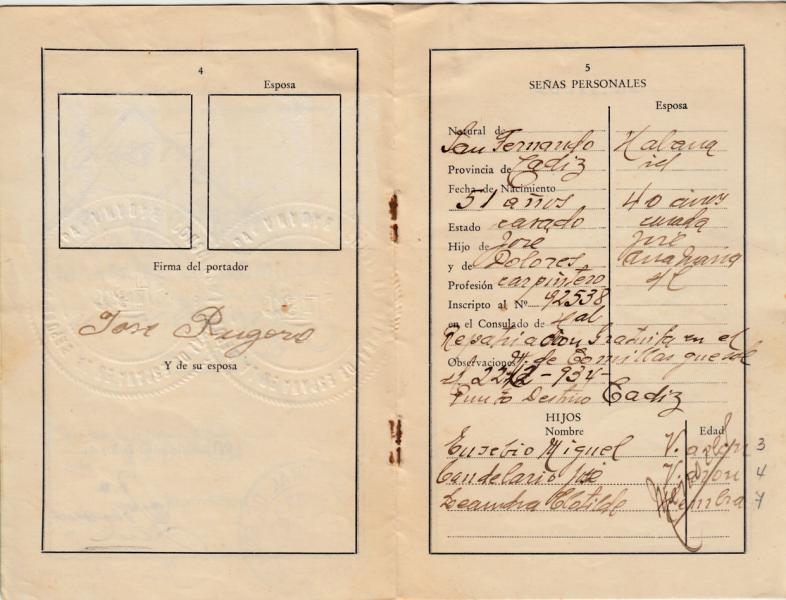 4
Esposa
Firma del portador
Jose
Y de su esposa
5
SEÑAS PERSONALES
Esposa
Natural de San Fernando Habana
Provincia de Cadiz id
Fecha de Nacimiento
51 años 40 años
Estado casado casada
Hijo de José José
y de Dolores
Profesión carpintero
Inscripto al Nº 92538
en el Consulado de Hal
Repatriacion Gratuita en el
Observaciones M. de Comillas que sal
el 22-12-934-
Punto Destino Cadiz
HIJOS
Nombre Edad
Eusebio Miguel Varón 3
Candelario José Varon 4
Leandra Clotilde Hembra 7